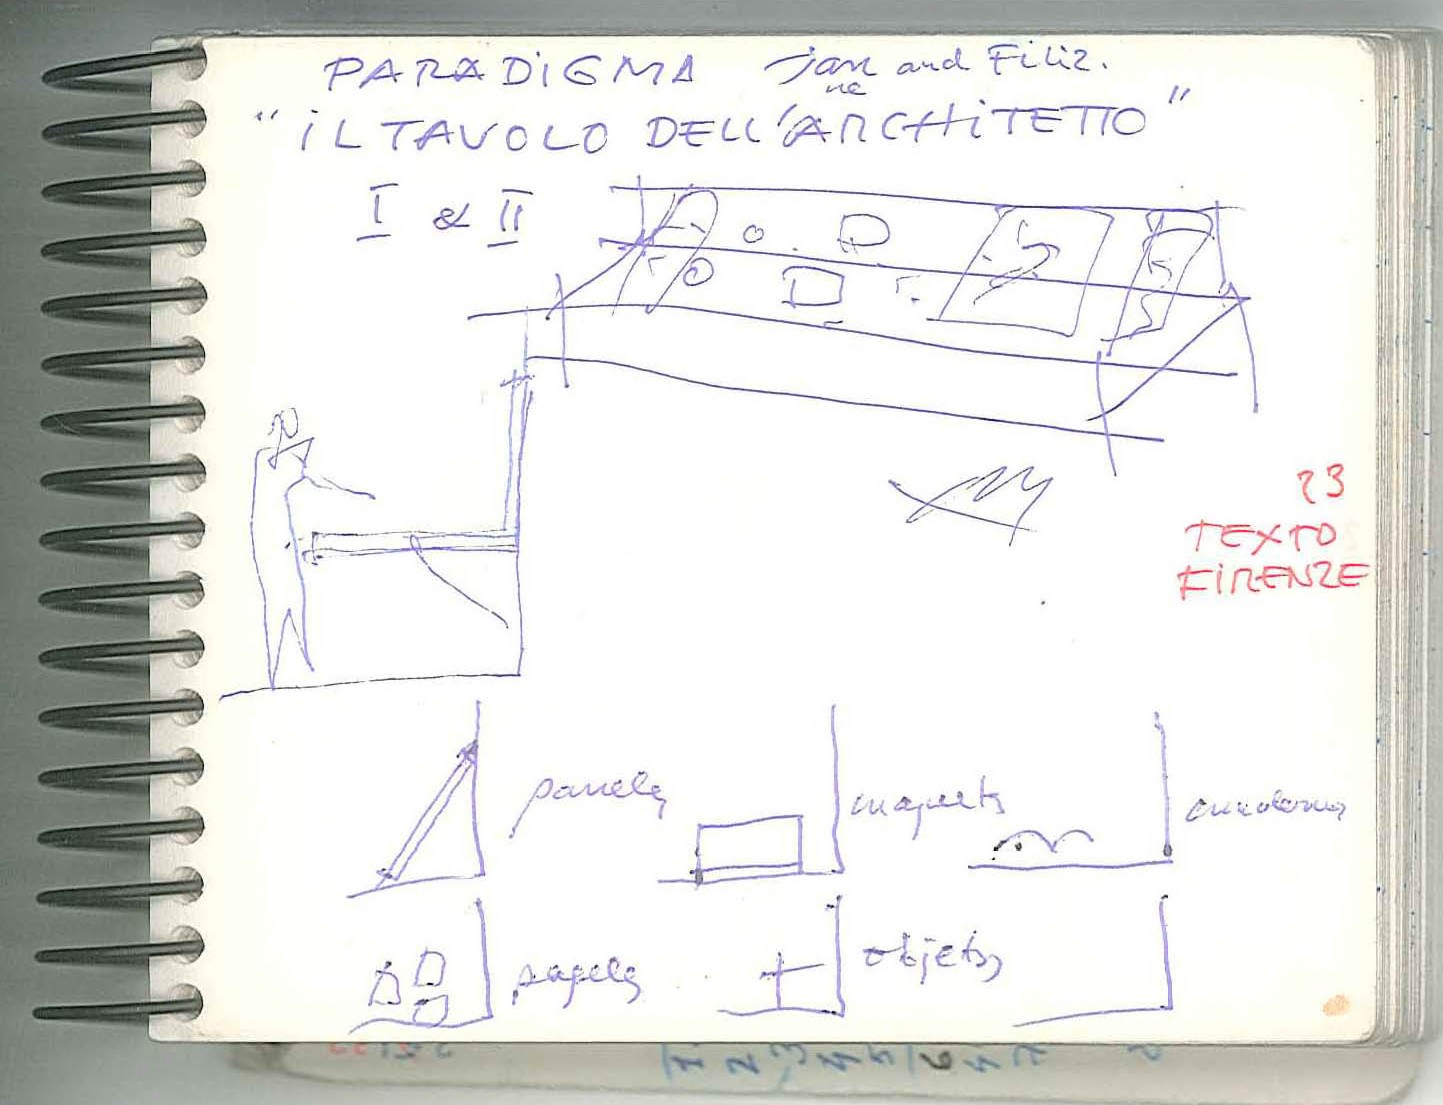 PARADIGMA Jan and Filiz.
ne
"iL TAVOLO DELL'ARCHiTETTO"
I & II
23
TEXTO
FiRENZE
paneles
maquetas
cuadernos
papeles
objetos